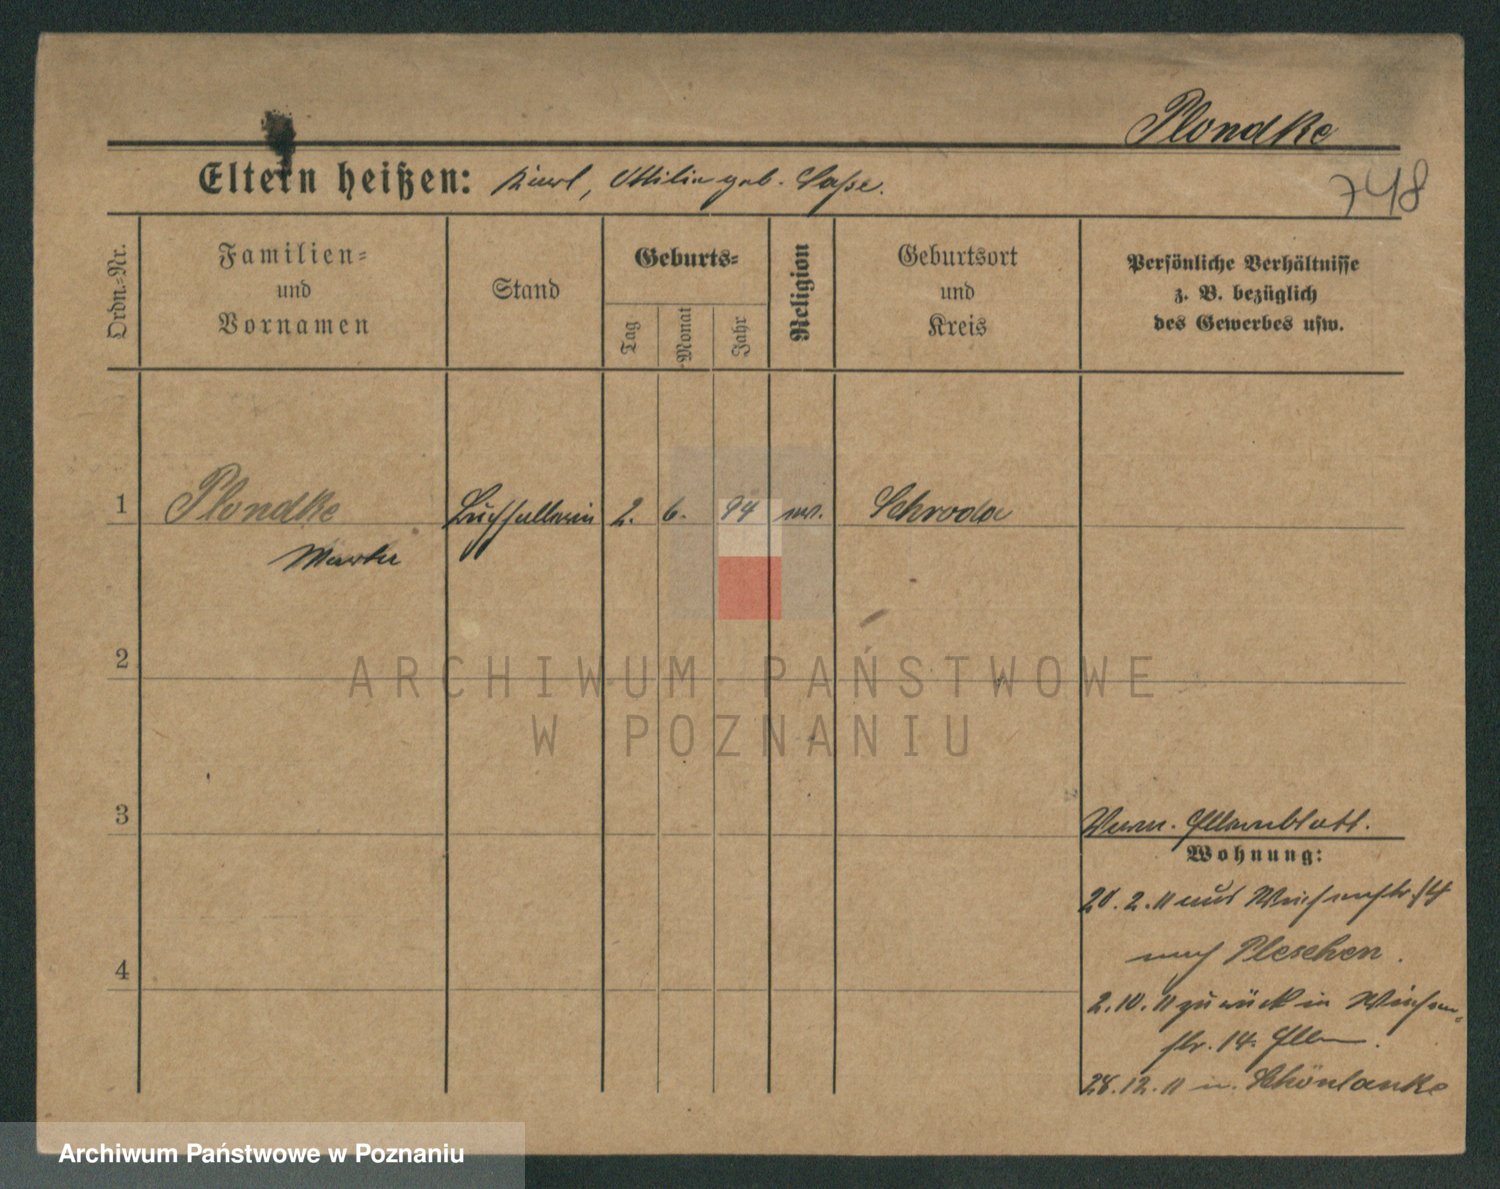 Plondke
Eltern heißen: Karl, Ottilie geb. Saße.
748
Ordn.-Nr.
Familien-
und
Vornamen
Stand
Geburts-
Tag
Monat
Jahr
Religion
Geburtsort
und
Kreis
Persönliche Verhältnisse
z. B. bezüglich
des Gewerbes usw.
1
Plondke
Buchhalterin
2.
6.
94
ev.
Schroda
Martha
2
ARCHIWUM PAŃSTWOWE
W POZNANIU
3
Verm. Elternblatt.
Wohnung:
20.2.11 aus 14
nach Pleschen.
4
2.10.11 zurück in
str. 14. Eltern.
28.12.11 n. Schönlanke
Archiwum Państwowe w Poznaniu